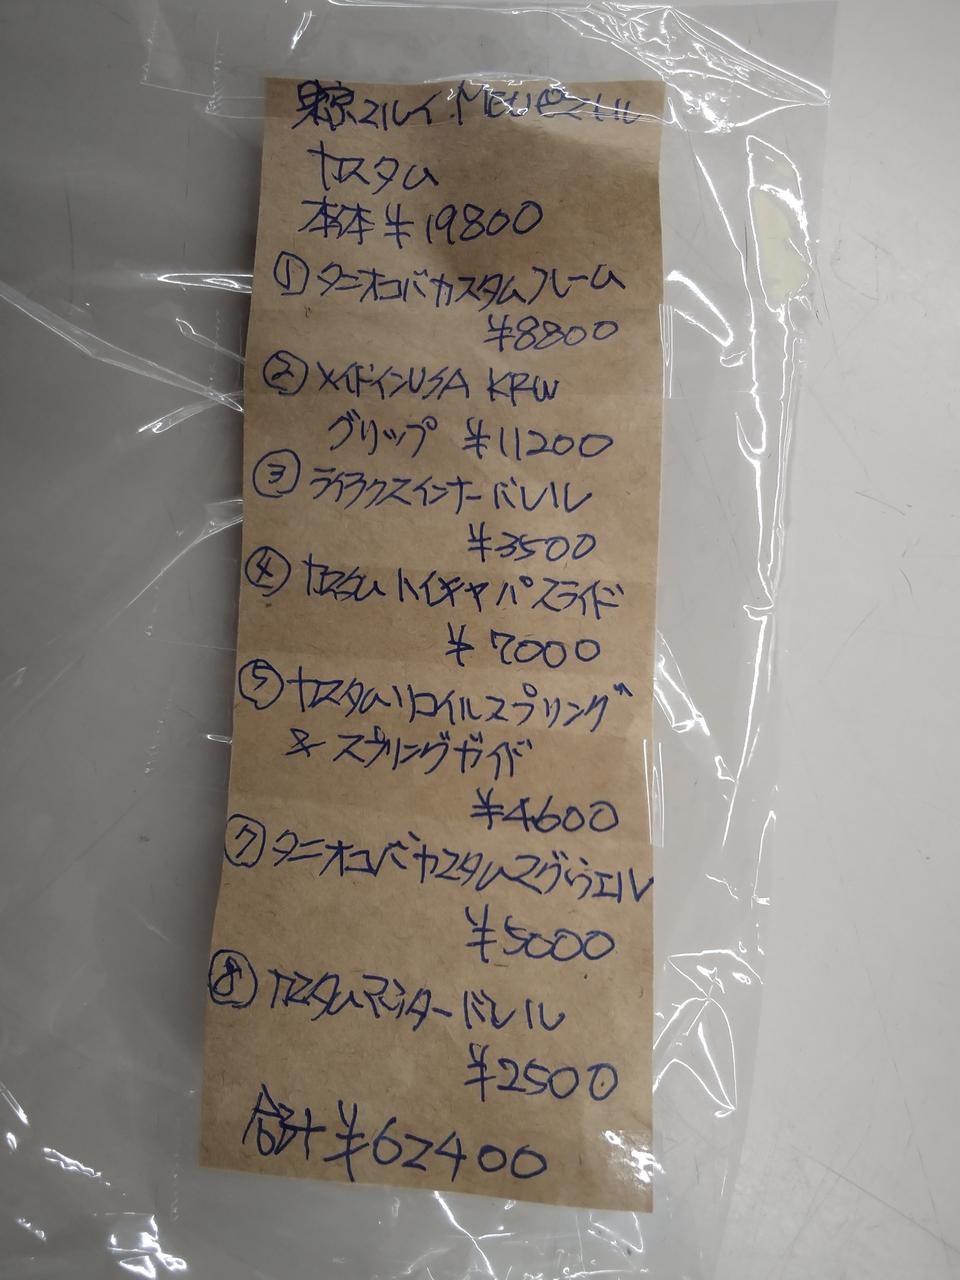 東京マルイ MEUピストル
カスタム
本体 ¥19800
① タニオコバカスタムフレーム
¥8800
② メイドインUSA KRW
グリップ ¥11200
③ ライラクスインナーバレル
¥3500
④ カスタムハイキャパスライド
¥7000
⑤ カスタムリコイルスプリング
& スプリングガイド
¥4600
⑦ タニオコバカスタムマグウエル
¥5000
⑧ カスタムアウターバレル
¥2500
合計 ¥62400